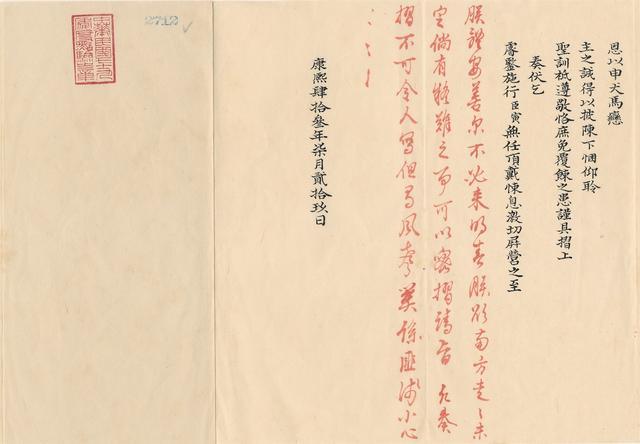 恩以申犬馬戀
主之誠得以披陳下悃仰聆
聖訓祗遵敬恪庶免覆餗之患謹具摺上
奏伏乞
睿鑒施行臣寅無任頂戴悚息激切屏營之至
朕體安善爾不必來明春朕欲南方走走未
定倘有疑難之事可以密摺請旨凡奏
摺不可令人寫但有風聲關係匪淺小心
小心小心
康熙肆拾叁年柒月貳拾玖日
2712